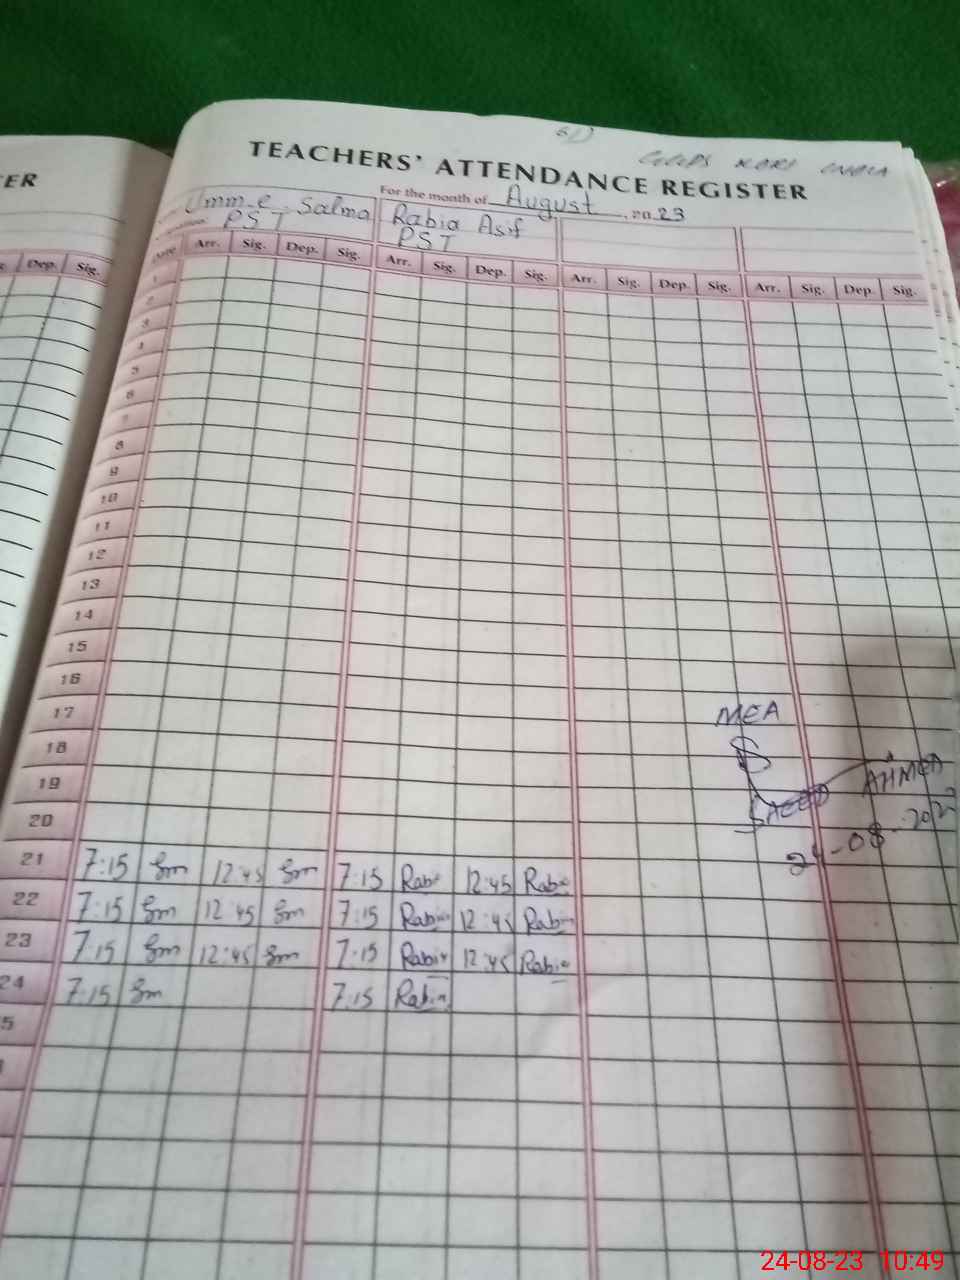 TER
Dep. Sig.
TEACHERS' ATTENDANCE REGISTER
For the month of August, 2023
Umm-e-Salma Rabia Asif
PST PST
Date Arr. Sig. Dep. Sig. Arr. Sig. Dep. Sig. Arr. Sig. Dep. Sig. Arr. Sig. Dep. Sig.
1
2
3
4
5
6
7
8
9
10
11
12
13
14
15
16
17
MEA
18
19
SAEED AHMED
20
24-08-2023
21 7:15 Sm 12:45 Sm 7:15 Rabia 12:45 Rabia
22 7:15 Sm 12:45 Sm 7:15 Rabia 12:45 Rabia
23 7:15 Sm 12:45 Sm 7:15 Rabia 12:45 Rabia
24 7:15 Sm 7:15 Rabia
5
24-08-23 10:49